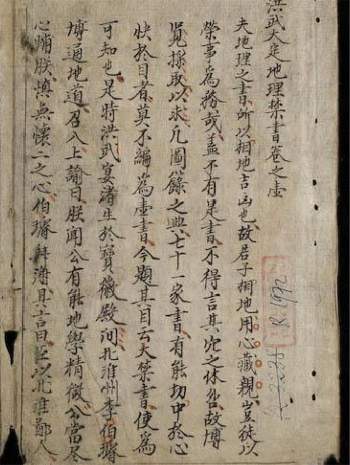 洪武大定地理禁書卷之壹
夫地理之書所以相地吉凶也故君子相地用心藏親豈徒以
榮事為務哉盖不有是書不得言其穴之休咎故博
覽採取以求凡圖籙之典七十一家書有能切中於心
快於目者莫不編為壹書今題其目云大禁書使為
可知也是時洪武宴濤生於寶徽殿間北淮州李伯
博通地道召入上諭曰朕聞公有能地學精徵公當尽
心輔朕無懷二之心伯拜濤具言曰臣以北淮鄙人